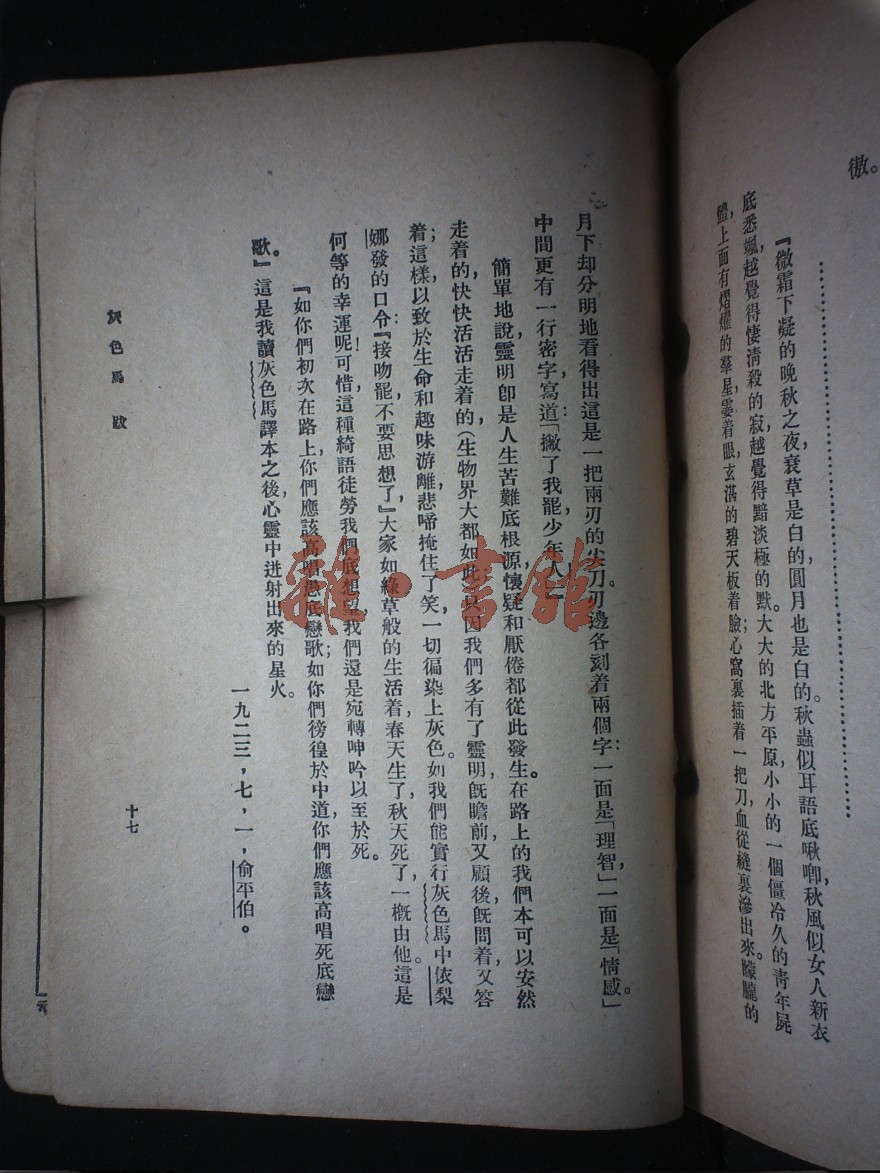 徹。
…………………………………………
『微霜下凝的晚秋之夜,衰草是白的,圓月也是白的。秋蟲似耳語底啾唧,秋風似女人新衣
底悉颯,越覺得悽淸殺的寂,越覺得黯淡極的默。大大的北方平原,小小的一個僵冷久的靑年屍
體,上面有熠燿的羣星霎着眼,玄湛的碧天板着臉;心窩裏插着一把刀,血從縫裏滲出來。矇朧的
月下却分明地看得出這是一把兩刃的尖刀。刃邊各刻着兩個字:一面是「理智」,一面是「情感」。
中間更有一行密字,寫道:「撇了我罷,少年人!」
簡單地說,靈明卽是人生苦難底根源,懷疑和厭倦都從此發生。在路上的我們本可以安然
走着的,快快活活走着的,(生物界大都如此)只因我們多有了靈明,旣瞻前,又顧後,旣問着,又答
着;這樣以致於生命和趣味游離,悲啼掩住了笑,一切徧染上灰色。如我們能實行灰色馬中依梨
娜發的口令:『接吻罷,不要思想了,』大家如綠草般的生活着,春天生了,秋天死了,一槪由他。這是
何等的幸運呢!可惜這種綺語徒勞我們底想望,我們還是宛轉呻吟以至於死。
『如你們初次在路上,你們應該高唱愚底戀歌;如你們徬徨於中道,你們應該高唱死底戀
歌。』這是我讀灰色馬譯本之後,心靈中迸射出來的星火。
一九二三,七,一,俞平伯。
灰色馬 跋
十七